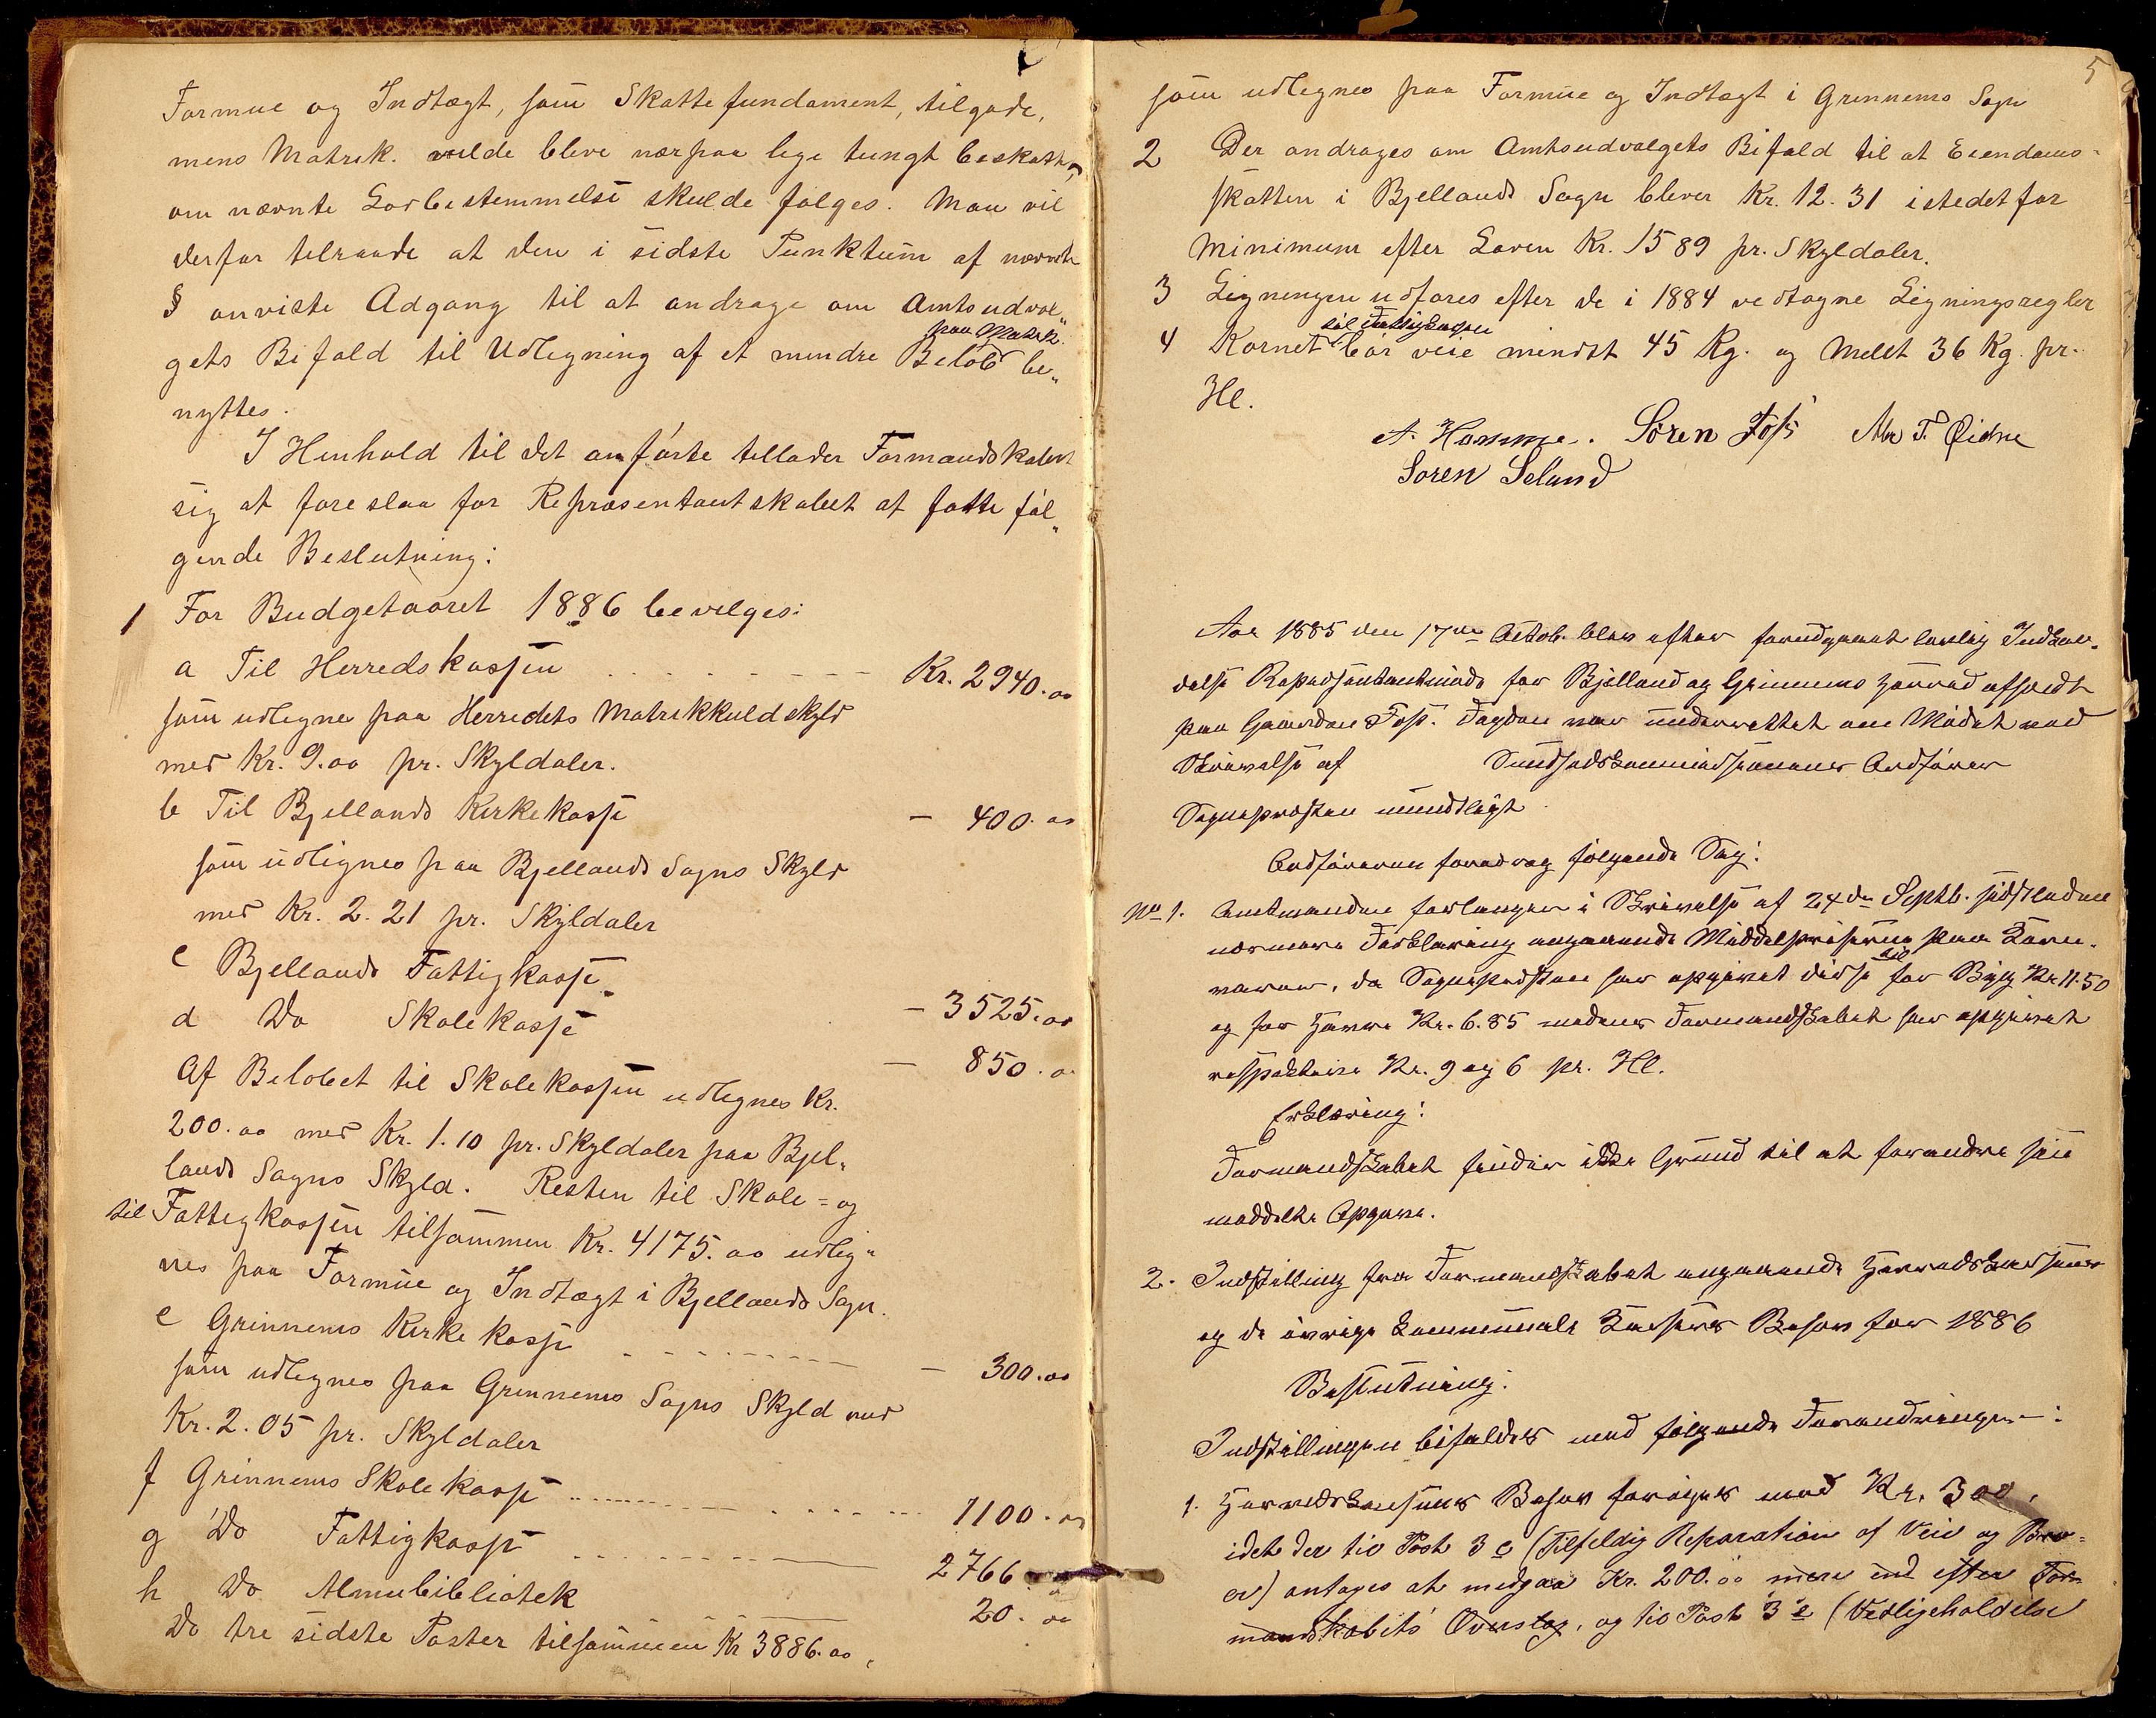 Formue og Indtægt, som Skattefundament, tilgode,
mens Matrik. vilde blive nærpaa lige tungt beskattet,
om nævnte Lovbestemmelse skulde følges. Man vil
derfor tilraade at den i sidste Punktum af nævnte
§ anviste Adgang til at andrage om Amtsudval„
paa Matrik.
gets Bifald til Udligning af et mindre Beløb be„
nyttes.
I Henhold til det anførte tillader Formandskabet
sig at foreslaa for Repræsentantskabet at fatte føl„
gende Beslutning:
1 For Budgetaaret 1886 bevilges:
a Til Herredskassen Kr. 2940.00
som udlignes paa Herredets Matrikkulskyld
med Kr. 9.00 pr. Skyldaler.
b Til Bjellands Kirkekasse – 400.00
som udlignes paa Bjellands Sogns Skyld
med Kr. 2.21 pr. Skyldaler
c Bjellands Fattigkasse – 3525.00
d Do Skolekasse – 850.00
Af Beløbet til Skolekassen udlignes Kr.
200.00 med Kr. 1.10 pr. Skyldaler paa Bjel„
lands Sogns Skyld. Resten til Skole= og
til Fattigkassen tilsammen Kr. 4175.00 udlig„
nes paa Formue og Indtægt i Bjellands Sogn.
e Grinnems Kirkekasse – 300.00
som udlignes paa Grinnems Sogns Skyld med
Kr. 2.05 pr. Skyldaler
f Grinnems Skolekasse 1100.00
g Do Fattigkasse 2766
h Do Almuebibliotek 20.00
De tre sidste Poster tilsammen Kr 3886.00,
5
som udlignes paa Formue og Indtægt i Grinnems Sogn
2 Der andrages om Amtsudvalgets Bifald til at Eiendoms-
skatten i Bjellands Sogn bliver Kr. 12.31 istedetfor
Minimum efter Loven Kr. 15 89 pr. Skyldaler.
3 Ligningen udføres efter de i 1884 vedtagne Ligningsregler
til Fattigkassen
4 Kornet bør veie mindst 45 Kg. og Melet 36 Kg. pr.
Hl.
A. Homme. Sören Foss T. Øidne
Soren Seland
Aar 1885 den 17de Octob. blev efter forudgaaet lovlig Indkal-
delse Repræsentantmøde for Bjelland og Grinnems Herred afholdt
paa Gaarden Foss. Fogden var underrettet om Mødet ved
Skrivelse af Sundhedskommissionens Ordfører
Sognepresten mundtligt.
Ordføreren foredrog følgende Sag:
No 1. Amtmanden forlanger i Skrivelse af 24de Septb. sidstleden
nærmere Forklaring angaaende Middelpriserne paa Korn-
varer, da Sognepresten har opgivet disse for Byg Kr 11.50
og for Havre Kr. 6.85 medens Formandskabet har opgivet
respektive Kr. 9 og 6 pr. Hl.
Erklæring:
Formandskabet finder ikke Grund til at forandre sin
meddelte Opgave.
2. Indstilling fra Formandskabet angaaende Herredskassens
og de øvrige kommunale Kassers Behov for 1886
Beslutning:
Indstillingen bifaldes med følgende Forandringer:
1. Herredskassens Behov forøges med Kr. 300,
idet der til Post 3 c (Tilfeldig Reparation af Veie og Bro=
er) antages at medgaa Kr. 200.00 mere end efter For
mandskabets Overslag, og til Post 3 e (Vedligeholdelse